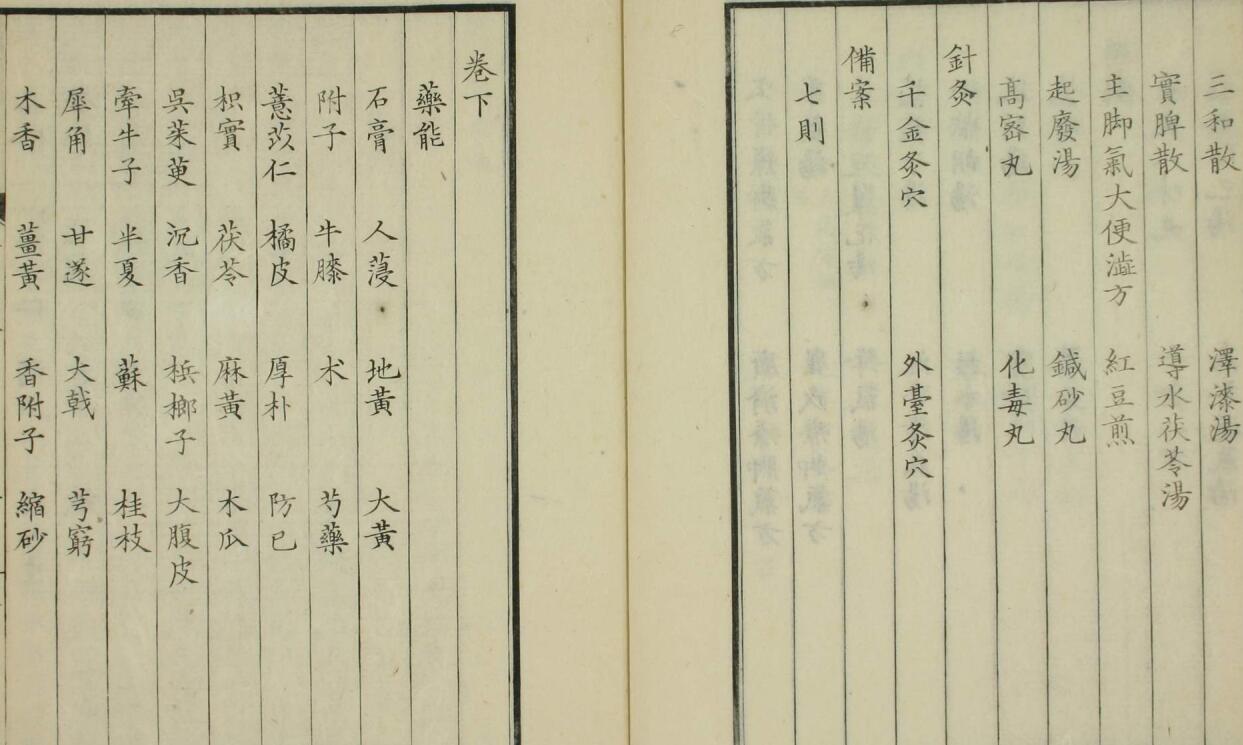 三和散 澤漆湯
實脾散 導水茯苓湯
主脚氣大便澁方 紅豆煎
起廢湯 鍼砂丸
髙宻丸 化毒丸
針灸
千金灸穴 外臺灸穴
備案
七則
卷下
藥能
石膏 人蓡 地黃 大黃
附子 牛膝 朮 芍藥
薏苡仁 橘皮 厚朴 防已
枳實 茯苓 麻黃 木瓜
吳茱萸 沉香 梹榔子 大腹皮
牽牛子 半夏 蘇 桂枝
犀角 甘遂 大戟 芎窮
木香 薑黃 香附子 縮砂